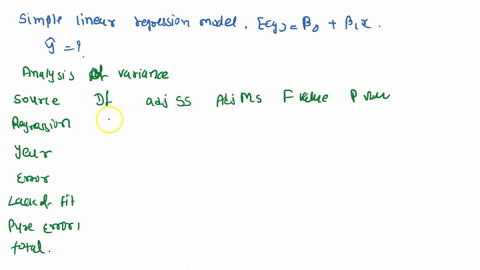 Simple linear regression model. E(y) = β₀ + β₁x.
ŷ = ?
Analysis of variance
Source Df adj SS Adj MS F value P value
Regression
Year
Error
Lack of fit
Pure error,
total.